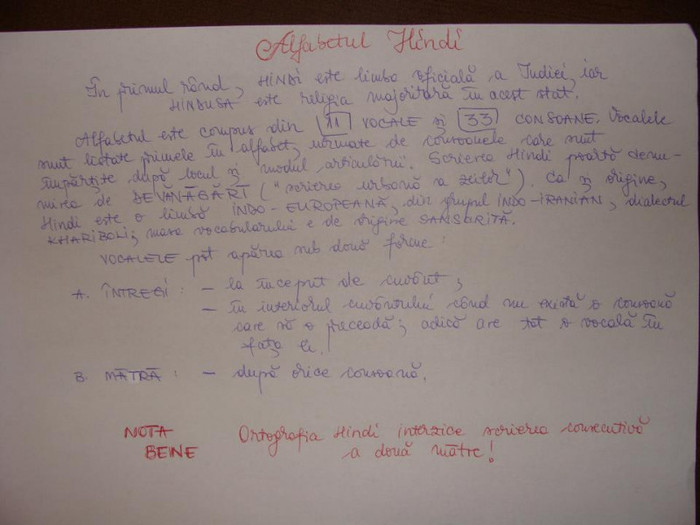 Alfabetul Hindi
În primul rând, HINDI este limba oficială a Indiei, iar
HINDUSA este religia majoritară în acest stat.
Alfabetul este compus din 11 VOCALE și 33 CONSOANE. Vocalele
sunt listate primele în alfabet, urmate de consoanele care sunt
împărțite după locul și modul articulării. Scrierea Hindi poartă denu-
mirea de DEVĀNĀGĀRĪ ("scrierea urbană a zeilor"). Ca și origine,
Hindi este o limbă INDO-EUROPEANĂ, din grupul INDO-IRANIAN, dialectul
KHARIBOLI; masa vocabularului e de origine SANSCRITĂ.
VOCALELE pot apărea sub două forme:
A. ÎNTREGI: - la început de cuvânt;
- în interiorul cuvântului când nu există o consoană
care să o preceadă; adică are tot o vocală în
fața ei.
B. MĀTRĀ: - după orice consoană.
NOTA Ortografia Hindi interzice scrierea consecutivă
BEINE a două mātre!